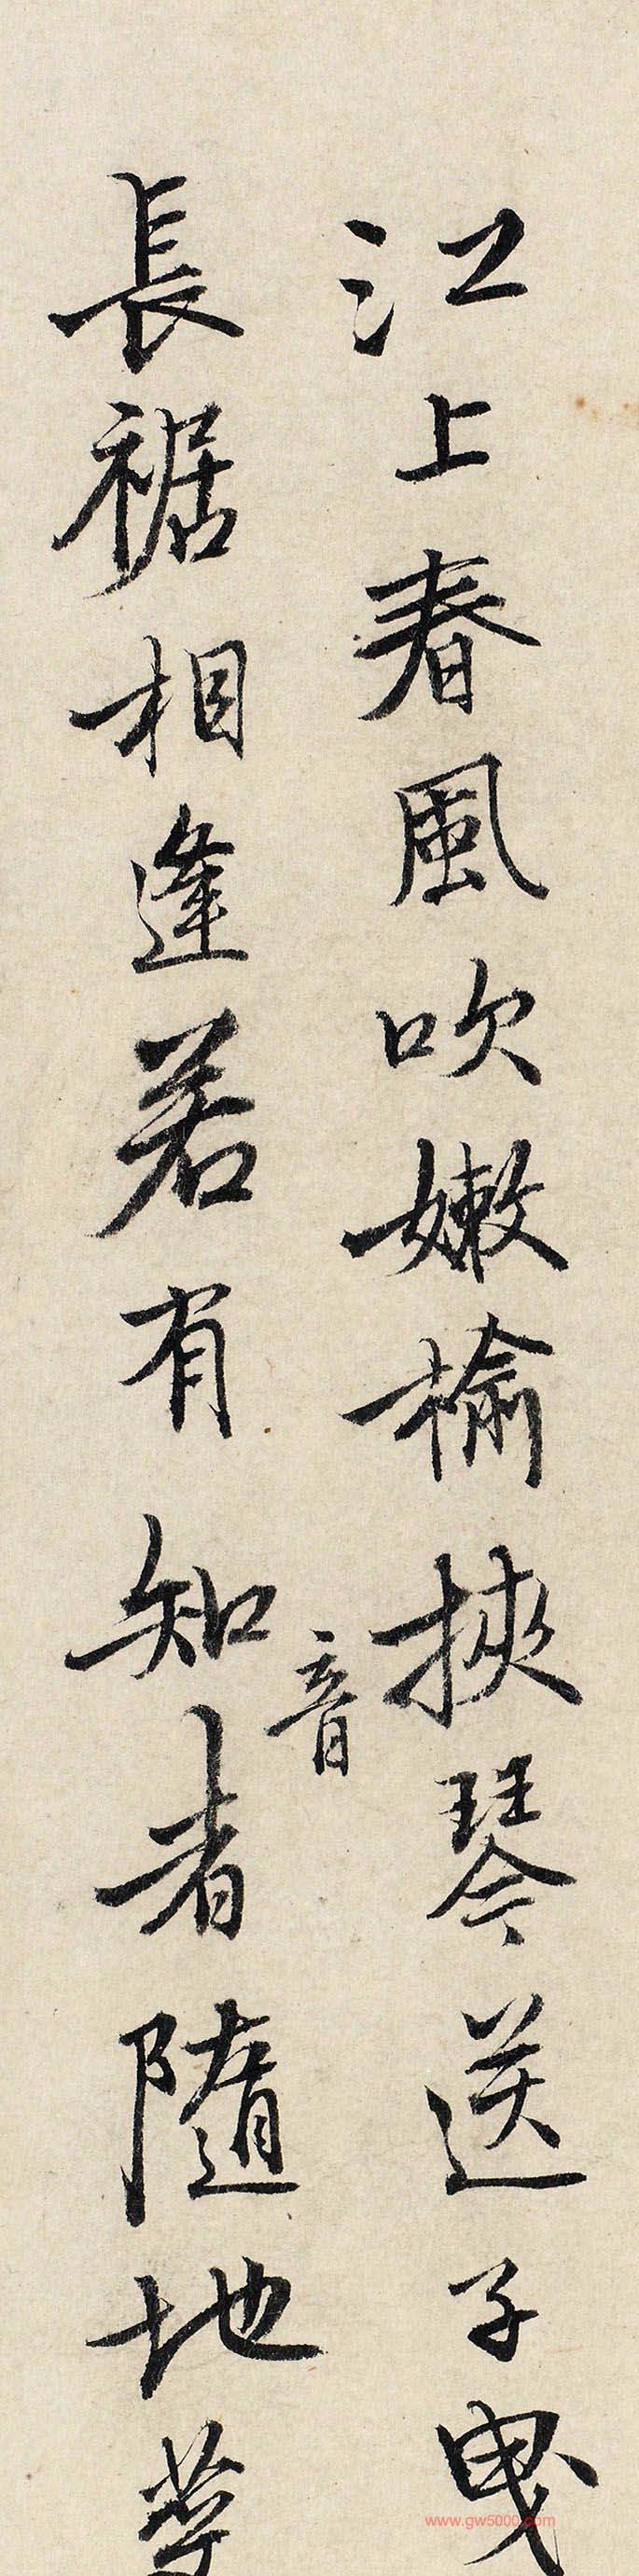 江上春風吹嫩榆挾琴送子曳
長裾相逢若有知音者隨地
音
www.gw5000.com